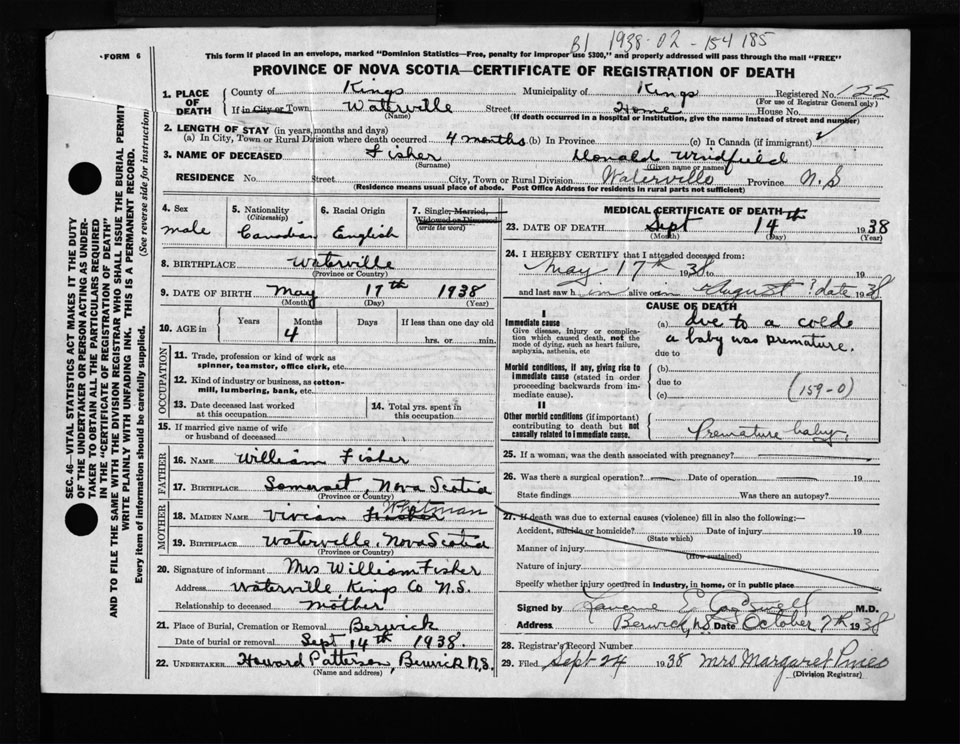 B1 1938-02-154185
FORM 6
This form if placed in an envelope, marked "Dominion Statistics—Free, penalty for improper use $300," and properly addressed will pass through the mail "FREE"
PROVINCE OF NOVA SCOTIA—CERTIFICATE OF REGISTRATION OF DEATH
1. PLACE OF DEATH
County of Kings Municipality of Kings Registered No. 122
(For use of Registrar General only)
If in City or Town Waterville Street Home House No.
(Name) (If death occurred in a hospital or institution, give the name instead of street and number)
2. LENGTH OF STAY (in years, months and days)
(a) In City, Town or Rural Division where death occurred 4 months (b) In Province (c) In Canada (if immigrant)
3. NAME OF DECEASED Fisher Donald Windfield
(Surname) (Given name or names)
RESIDENCE No. Street City, Town or Rural Division Waterville Province N.S
(Residence means usual place of abode. Post Office Address for residents in rural parts not sufficient)
4. Sex male
5. Nationality (Citizenship) Canadian
6. Racial Origin English
7. Single, Married, Widowed or Divorced (write the word)
8. BIRTHPLACE Waterville
(Province or Country)
9. DATE OF BIRTH May 17th 1938
(Month) (Day) (Year)
10. AGE in Years Months 4 Days If less than one day old hrs. or min.
OCCUPATION
11. Trade, profession or kind of work as spinner, teamster, office clerk, etc.
12. Kind of industry or business, as cotton-mill, lumbering, bank, etc.
13. Date deceased last worked at this occupation
14. Total yrs. spent in this occupation
15. If married give name of wife or husband of deceased
FATHER
16. NAME William Fisher
17. BIRTHPLACE Somerset, Nova Scotia
(Province or Country)
MOTHER
18. MAIDEN NAME Vivian Whitman
19. BIRTHPLACE Waterville, Nova Scotia
(Province or Country)
20. Signature of informant Mrs William Fisher
Address Waterville Kings Co N.S.
Relationship to deceased Mother
21. Place of Burial, Cremation or Removal Berwick
Date of burial or removal Sept 14th 1938.
22. UNDERTAKER Howard Patterson, Berwick N.S.
(Name and address)
MEDICAL CERTIFICATE OF DEATH
23. DATE OF DEATH Sept 14th 1938
(Month) (Day) (Year)
24. I HEREBY CERTIFY that I attended deceased from:
May 17th 1938 to 19
and last saw him alive on in August ?date 1938
CAUSE OF DEATH
I
Immediate cause
Give disease, injury or complication which caused death, not the mode of dying, such as heart failure, asphyxia, asthenia, etc
(a) due to a colde
a baby was premature.
due to
Morbid conditions, if any, giving rise to immediate cause (stated in order proceeding backwards from immediate cause).
(b)
due to
(c)
(159-0)
II
Other morbid conditions (if important) contributing to death but not causally related to immediate cause.
Premature baby.
25. If a woman, was the death associated with pregnancy?
26. Was there a surgical operation? Date of operation 19
State findings Was there an autopsy?
27. If death was due to external causes (violence) fill in also the following:—
Accident, suicide or homicide? Date of injury 19
(State which)
Manner of injury
(How sustained)
Nature of injury
Specify whether injury occurred in industry, in home, or in public place
Signed by Laverne E. Cogswell M.D.
Address Berwick, N.S. Date October 7th 1938
28. Registrar's Record Number
29. Filed Sept 24 1938 Mrs Margaret Pineo
(Division Registrar)
SEC. 46—VITAL STATISTICS ACT MAKES IT THE DUTY
OF THE UNDERTAKER OR PERSON ACTING AS UNDER-
TAKER TO OBTAIN ALL THE PARTICULARS REQUIRED
IN THE "CERTIFICATE OF REGISTRATION OF DEATH"
AND TO FILE THE SAME WITH THE DIVISION REGISTRAR WHO SHALL ISSUE THE BURIAL PERMIT
WRITE PLAINLY WITH UNFADING INK. THIS IS A PERMANENT RECORD.
Every item of information should be carefully supplied. (See reverse side for instruction)